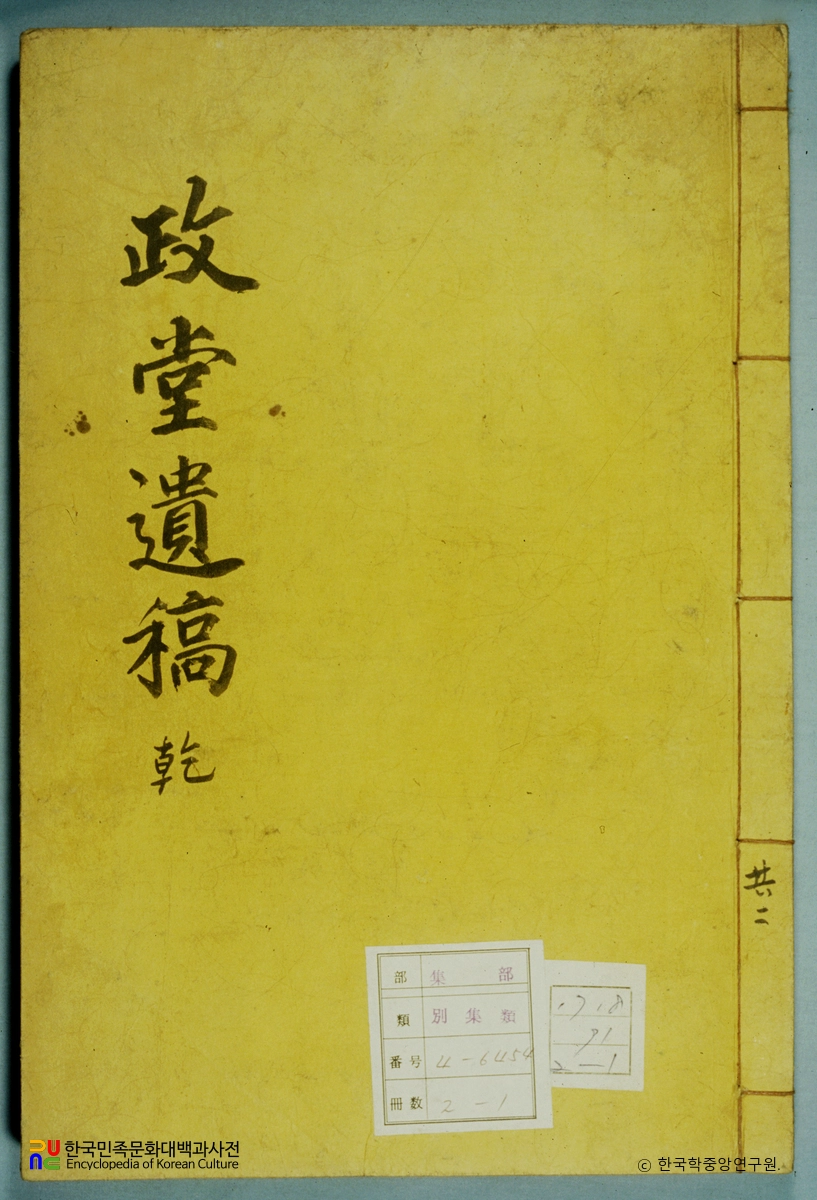 政堂遺稿 乾
共二
部 集部
類 別集類
番号 4-6454
冊数 2-1
2-1
한국민족문화대백과사전
Encyclopedia of Korean Culture
© 한국학중앙연구원.